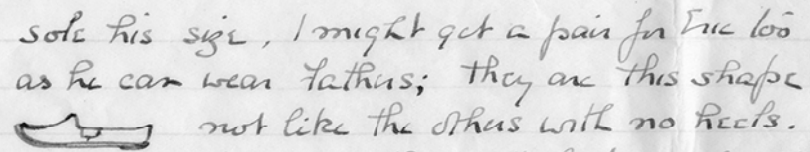 sole his size, I might get a pair for Eric too
as he can wear fathers; they are this shape
not like the others with no heels.